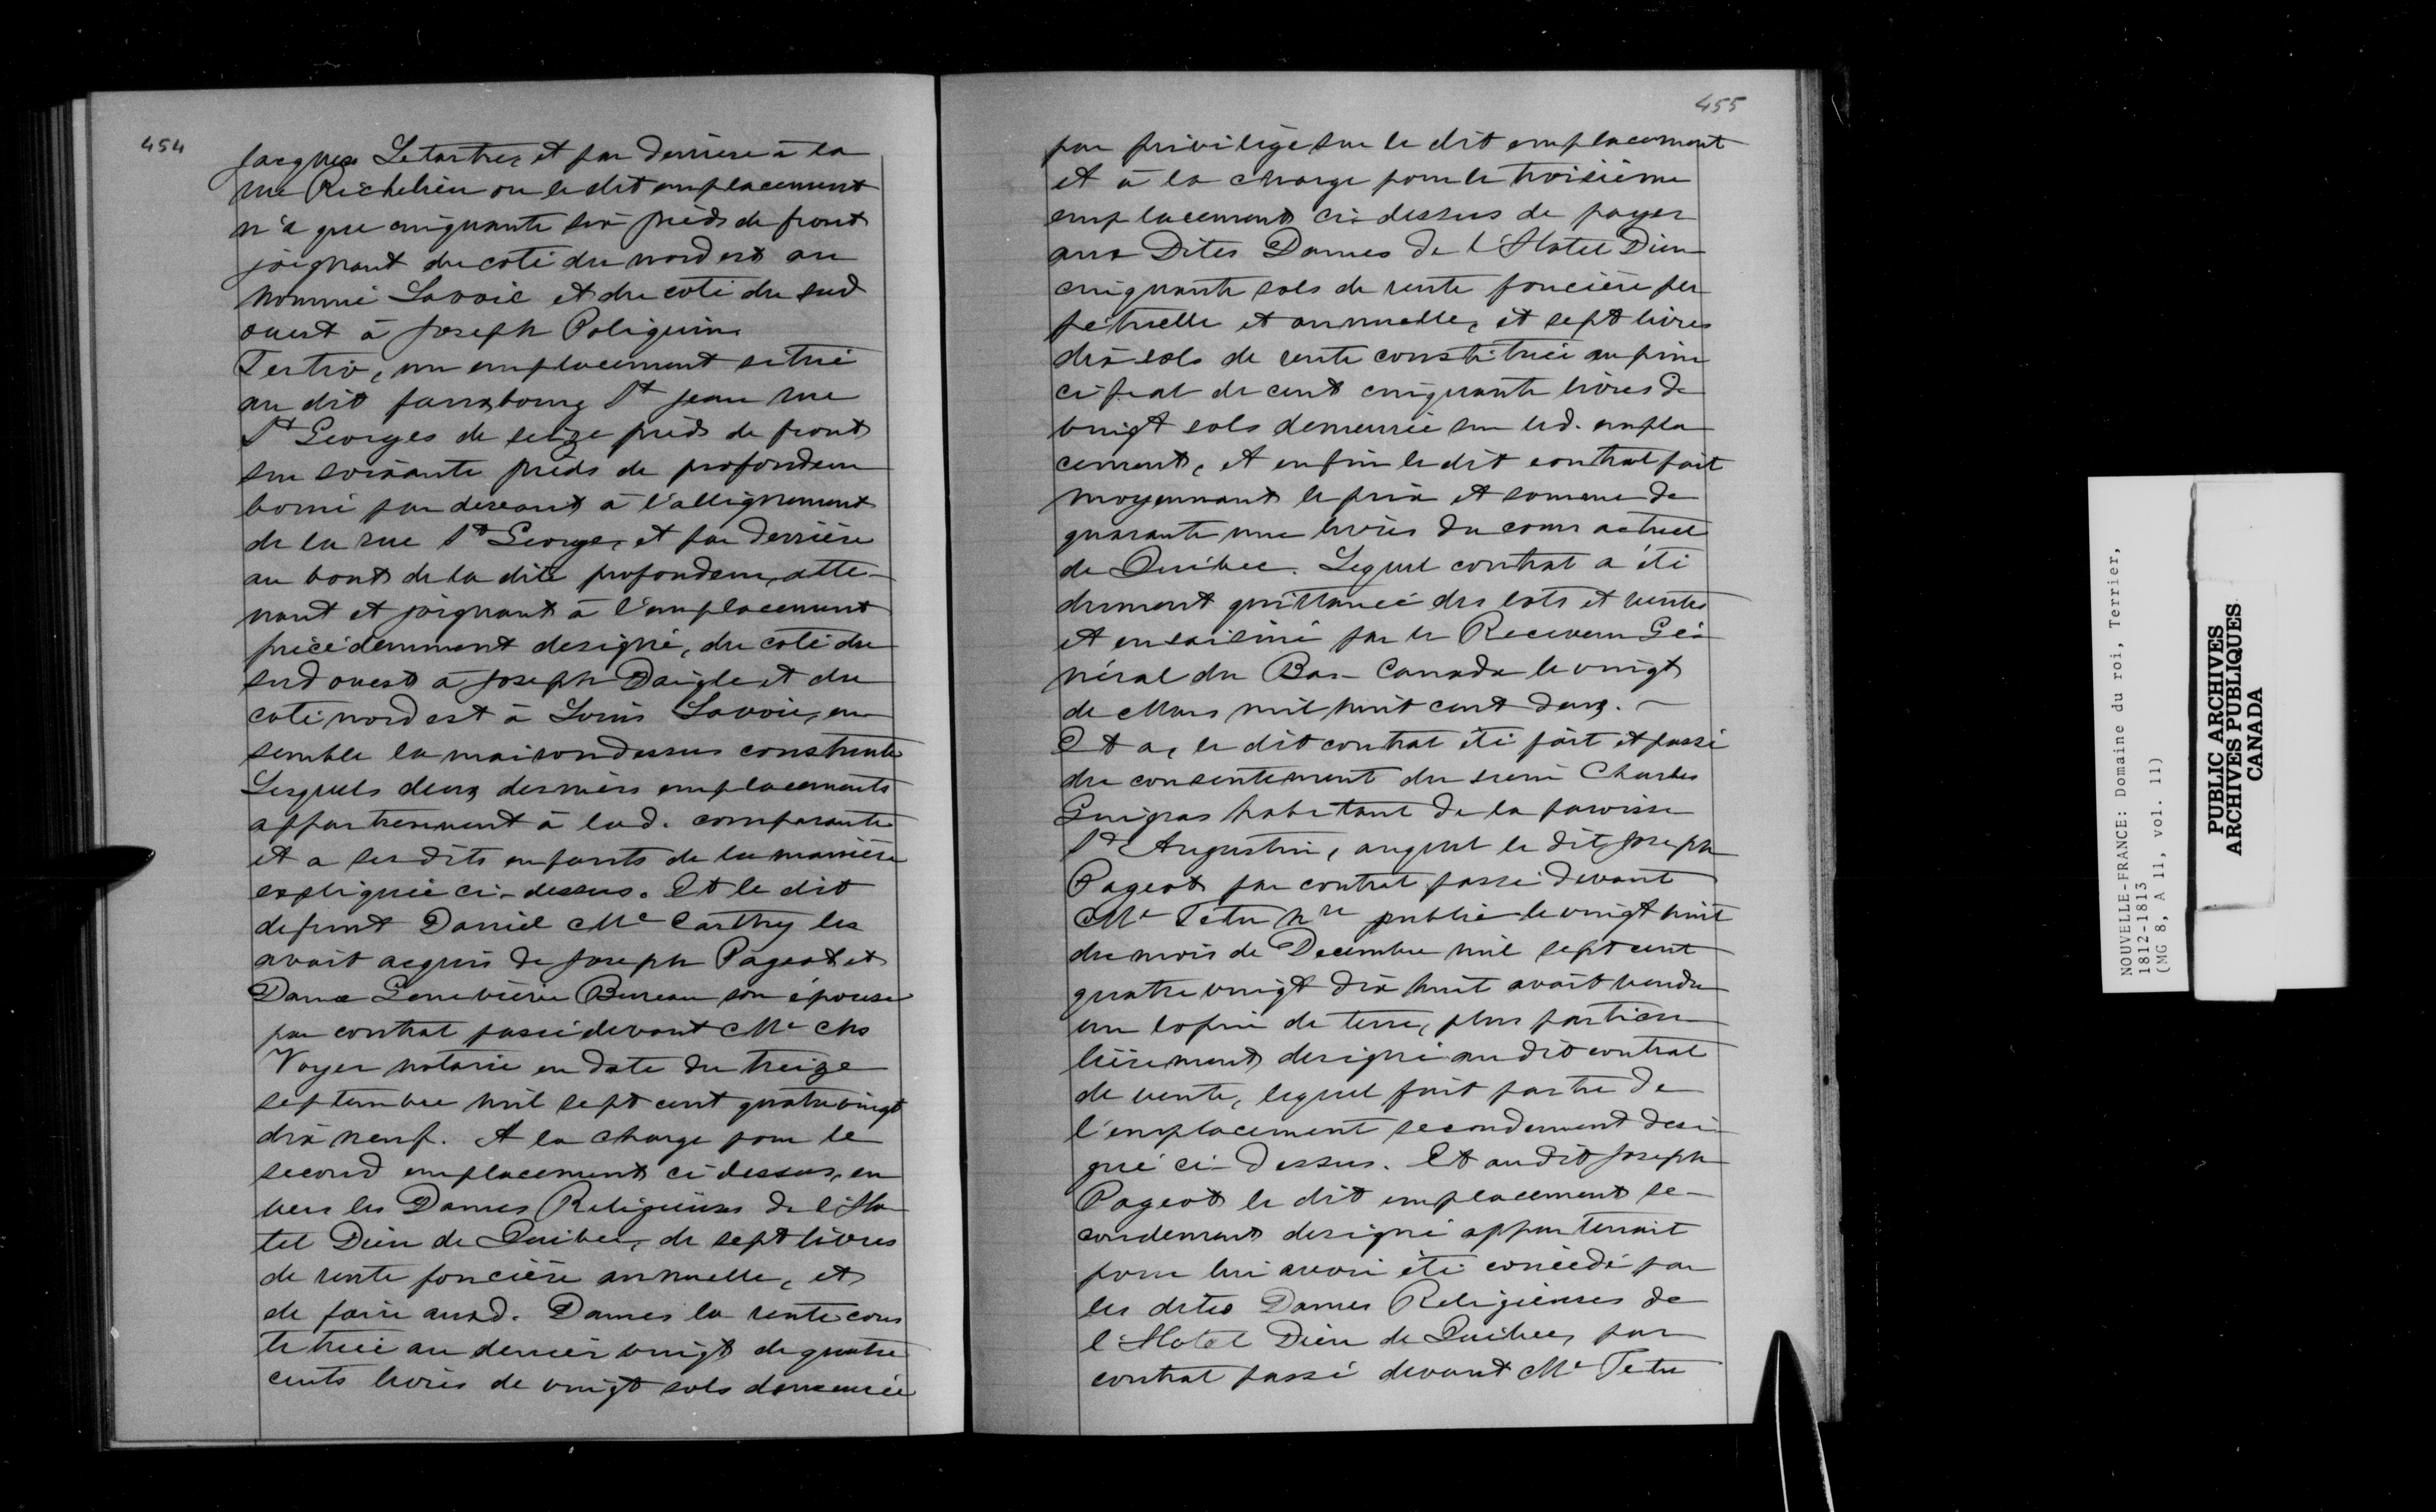 454
Jacques Letartre, et par derriere à la
rue Richelieu ou le dit emplacement
n'a que cinquante six pieds de front
joignant du coté du nord est au
nommé Lavoie et du coté du sud
ouest à Joseph Poliquin.
Tertio, un emplacement situé
au dit fauxbourg St Jean rue
St Georges de seize pieds de front
sur soixante pieds de profondeur
borné par devant à l'allignement
de la rue St George, et par derrière
au bout de la dite profondeur, atte-
nant et joignant à l'emplacement
précédemment designé, du coté du
sud ouest à Joseph Daigle et du
coté nord est à Louis Lavoie, en
semble la maison dessus construite
Lesquels deux derniers emplacements
appartiennent à lad. comparante
et a ses dits enfants de la manière
expliquée ci-dessus. Et le dit
defunt Daniel Mc Carthy les
avait acquis de Joseph Pageot et
Dame Geneviève Bureau son épouse
par contrat passé devant Me Chs
Voyer notaire en date du treize
septembre mil sept cent quatre vingt
dix neuf. A la charge pour le
second emplacement ci dessus, en
vers les Dames Religieuses de l'Ho
tel Dieu de Quibec, de sept livres
de rente foncière annuelle, et
de faire auxd. Dames la rente cons
tituée au denier vingt de quatre
cents livres de vingt sols demeurée
455
par privilège sur le dit emplacement
et à la charge pour le troisième
emplacement ci-dessus de payer
aux Dites Dames de l'Hotel Dieu
cinquante sols de rente foncière per
pétuelle et annuelle, et sept livres
dix sols de rente constituée au prin
cipal de cent cinquante livres de
vingt sols demeurée sur led. empla
cement, et enfin le dit contrat fait
moyennant le prix et somme de
quarante une livres du cours actuel
de Québec. Lequel contrat a été
dument quittancé des lots et ventes
et ensaisiné par le Receveur Gé-
néral du Bas-Canada le vingt
de Mars mil huit cent deux. -
Et a, le dit contrat été fait et passé
du consentement du sieur Charles
Guigras habitant de la paroisse
St Augustin, auquel le dit Joseph
Pageot par contrat passé devant
Me Tetu Nre public le vingt huit
du mois de Decembre mil sept cent
quatre vingt dix huit avait vendu
un lopin de terre, plus particu
lièrement designé au dit contrat
de vente, lequel fait partie de
l'emplacement secondement desi-
gné ci-dessus. Et au dit Joseph
Pageot le dit emplacement se-
condement designé appartenait
pour lui avoir été concédé par
les dites Dames Religieuses de
l'Hotel Dieu de Quibec, par
contrat passé devant Me Tetu
NOUVELLE-FRANCE: Domaine du roi, Terrier,
1812-1813
(MG 8, A 11, vol. 11)
PUBLIC ARCHIVES
ARCHIVES PUBLIQUES
CANADA